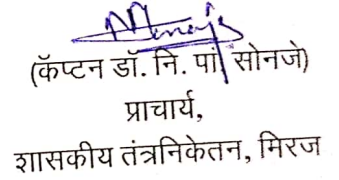 (कॅप्टन डॉ. नि. पां. सोनजे)
प्राचार्य,
शासकीय तंत्रनिकेतन, मिरज